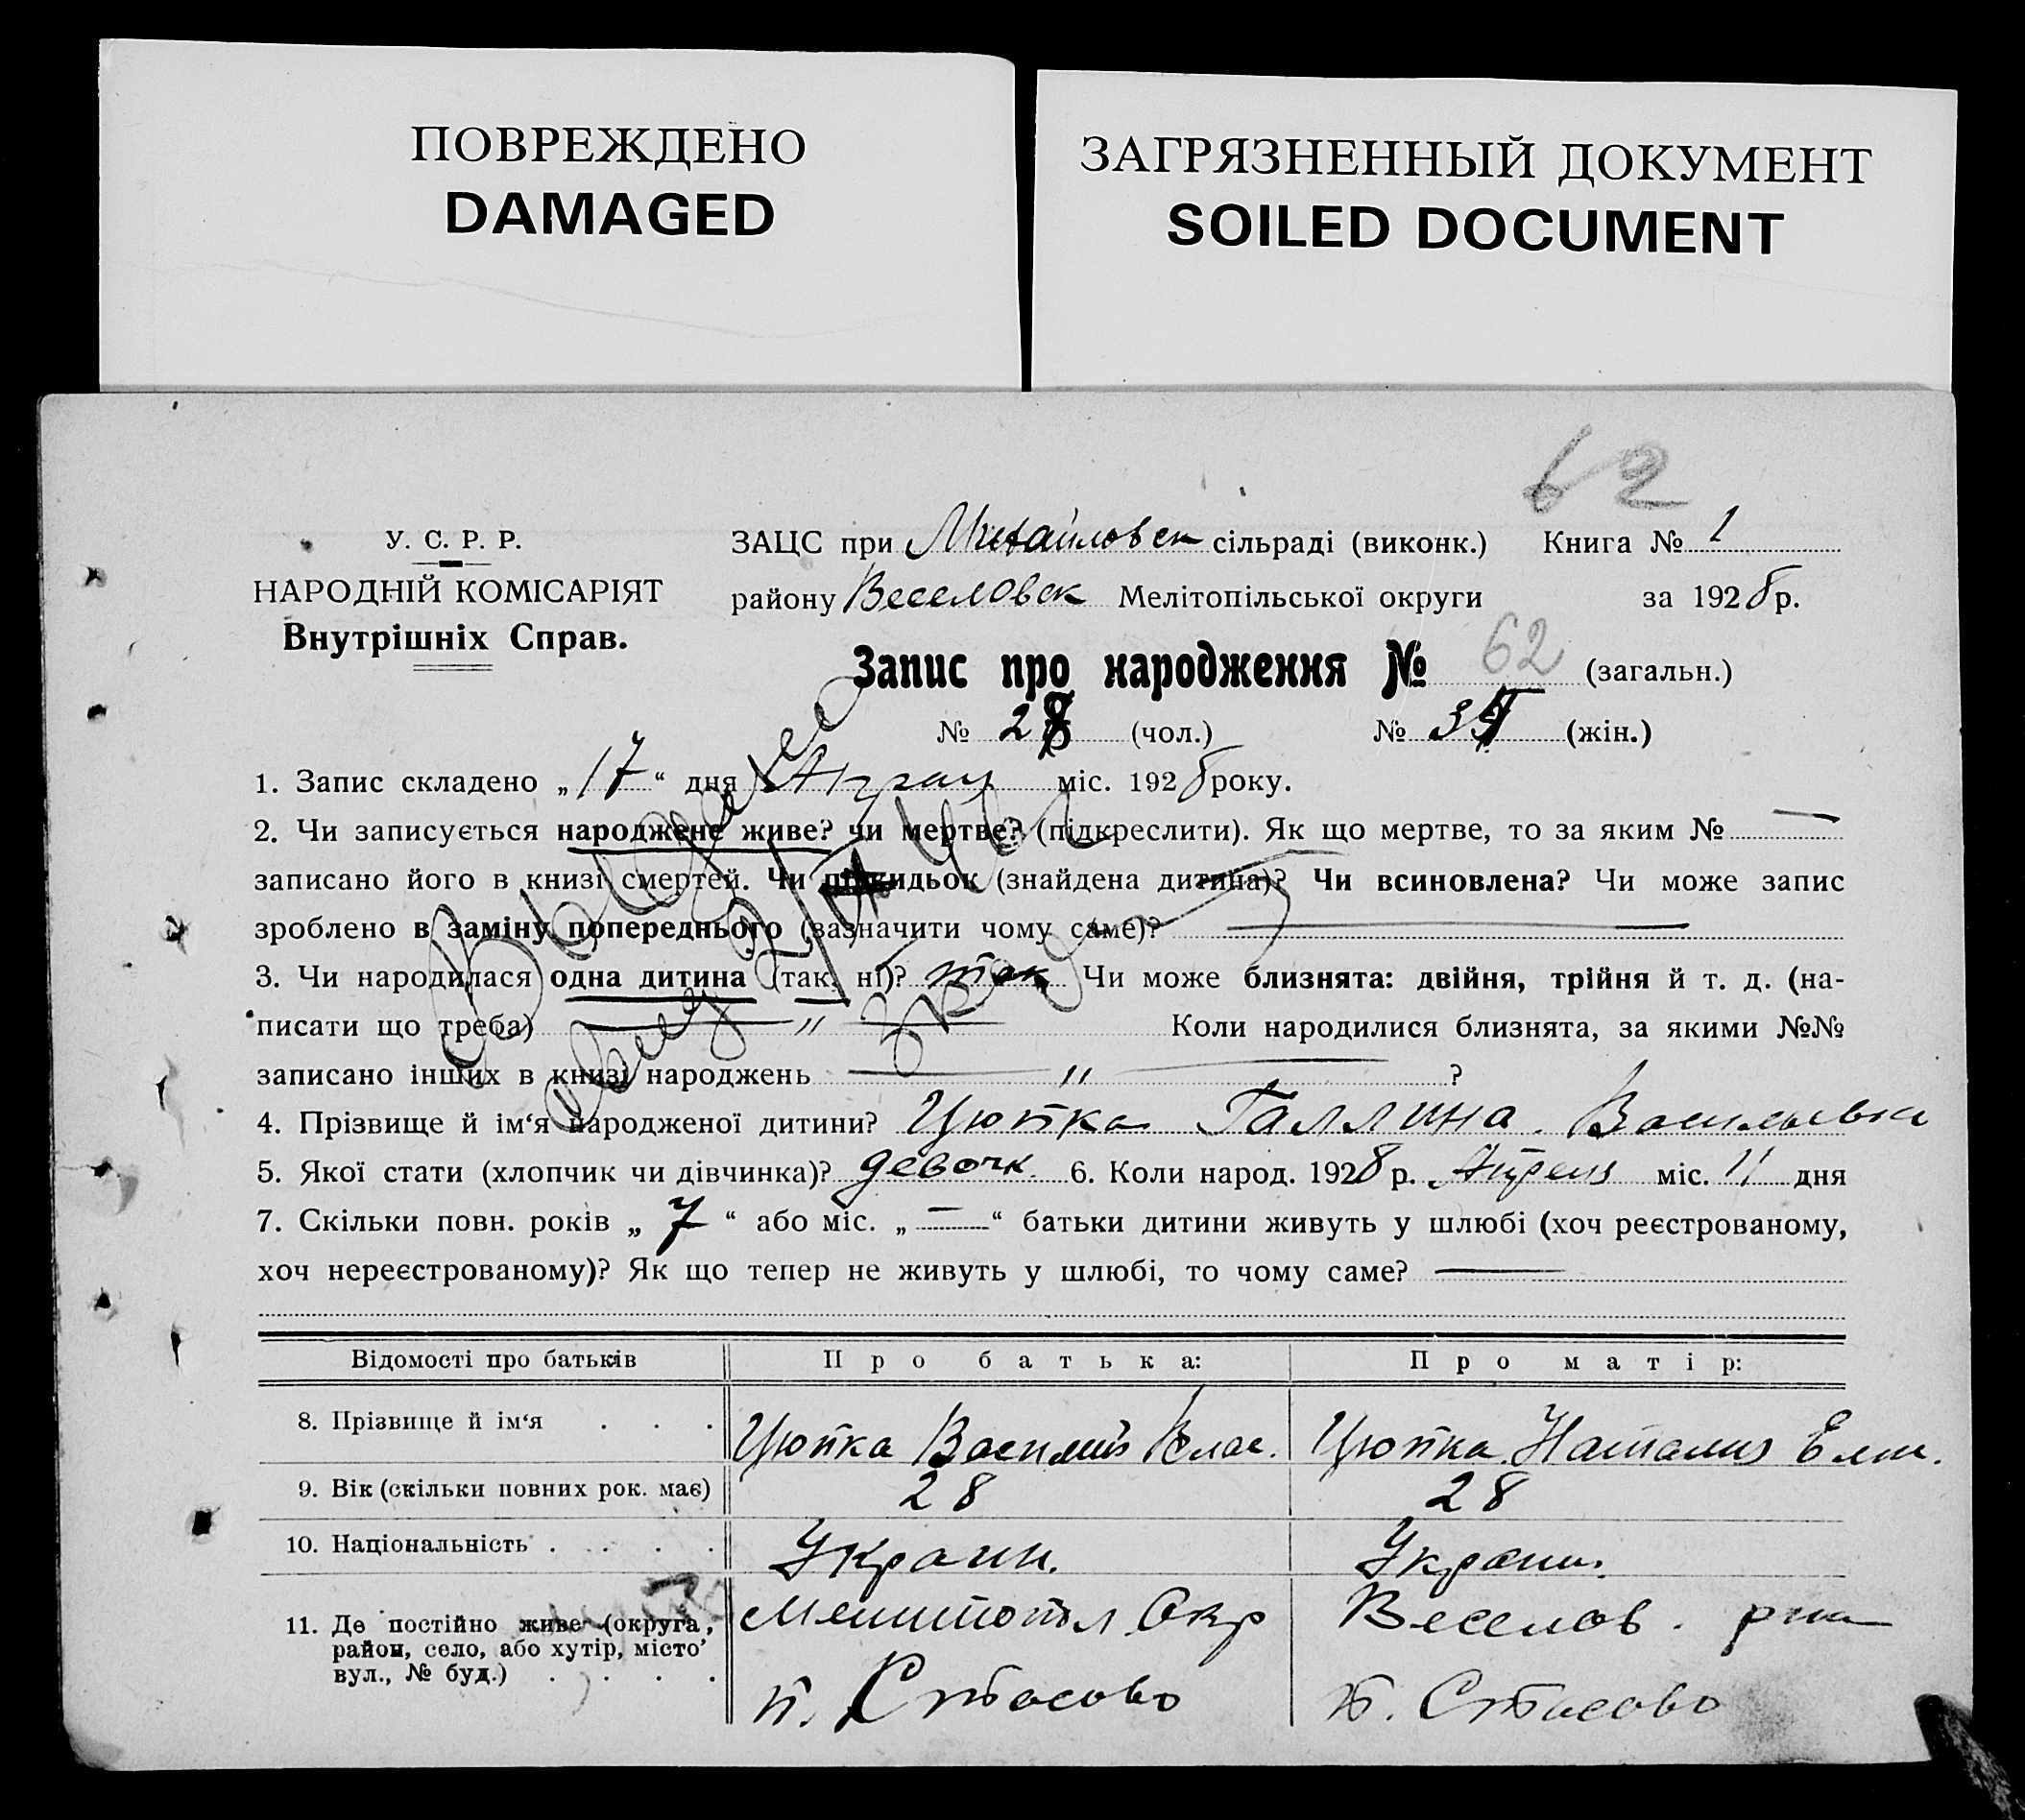 ПОВРЕЖДЕНО
DAMAGED
ЗАГРЯЗНЕННЫЙ ДОКУМЕНТ
SOILED DOCUMENT
62
У. С. Р. Р.
НАРОДНІЙ КОМІСАРІЯТ
Внутрішніх Справ.
ЗАЦС при Михайловск сільраді (виконк.) Книга № 1
району Веселовск Мелітопільської округи за 1928 р.
Запис про народження № 62 (загальн.)
№ 28 (чол.) № 34 (жін.)
1. Запис складено „17“ дня міс. 1928 року.
2. Чи записується народжене живе? чи мертве? (підкреслити). Як що мертве, то за яким № —
записано його в книзі смертей. Чи підкидьок (знайдена дитина)? Чи всиновлена? Чи може запис
зроблено в заміну попереднього (зазначити чому саме)? —
3. Чи народилася одна дитина (так, ні)? так Чи може близнята: двійня, трійня й т. д. (на-
писати що треба) — " — Коли народилися близнята, за якими №№
записано інших в книзі народжень — " — ?
4. Прізвище й ім‘я народженої дитини? Цюпка Галлина Васильевна
5. Якої стати (хлопчик чи дівчинка)? девочк 6. Коли народ. 1928 р. Апреля міс. 11 дня
7. Скільки повн. років „7“ або міс. „—“ батьки дитини живуть у шлюбі (хоч реєстрованому,
хоч нереєстрованому)? Як що тепер не живуть у шлюбі, то чому саме? —
Выдано
Відомості про батьків Про батька: Про матір:
8. Прізвище й ім‘я . . . Цюпка Василий Влас. Цюпка Наталия
9. Вік (скільки повних рок. має) 28 28
10. Національність . . . . Украин. Украин.
11. Де постійно живе (округа, Мелитопол Окр Веселов. рна
район, село, або хутір, місто
вул., № буд.) . . . . п. Стасово п. Стасово